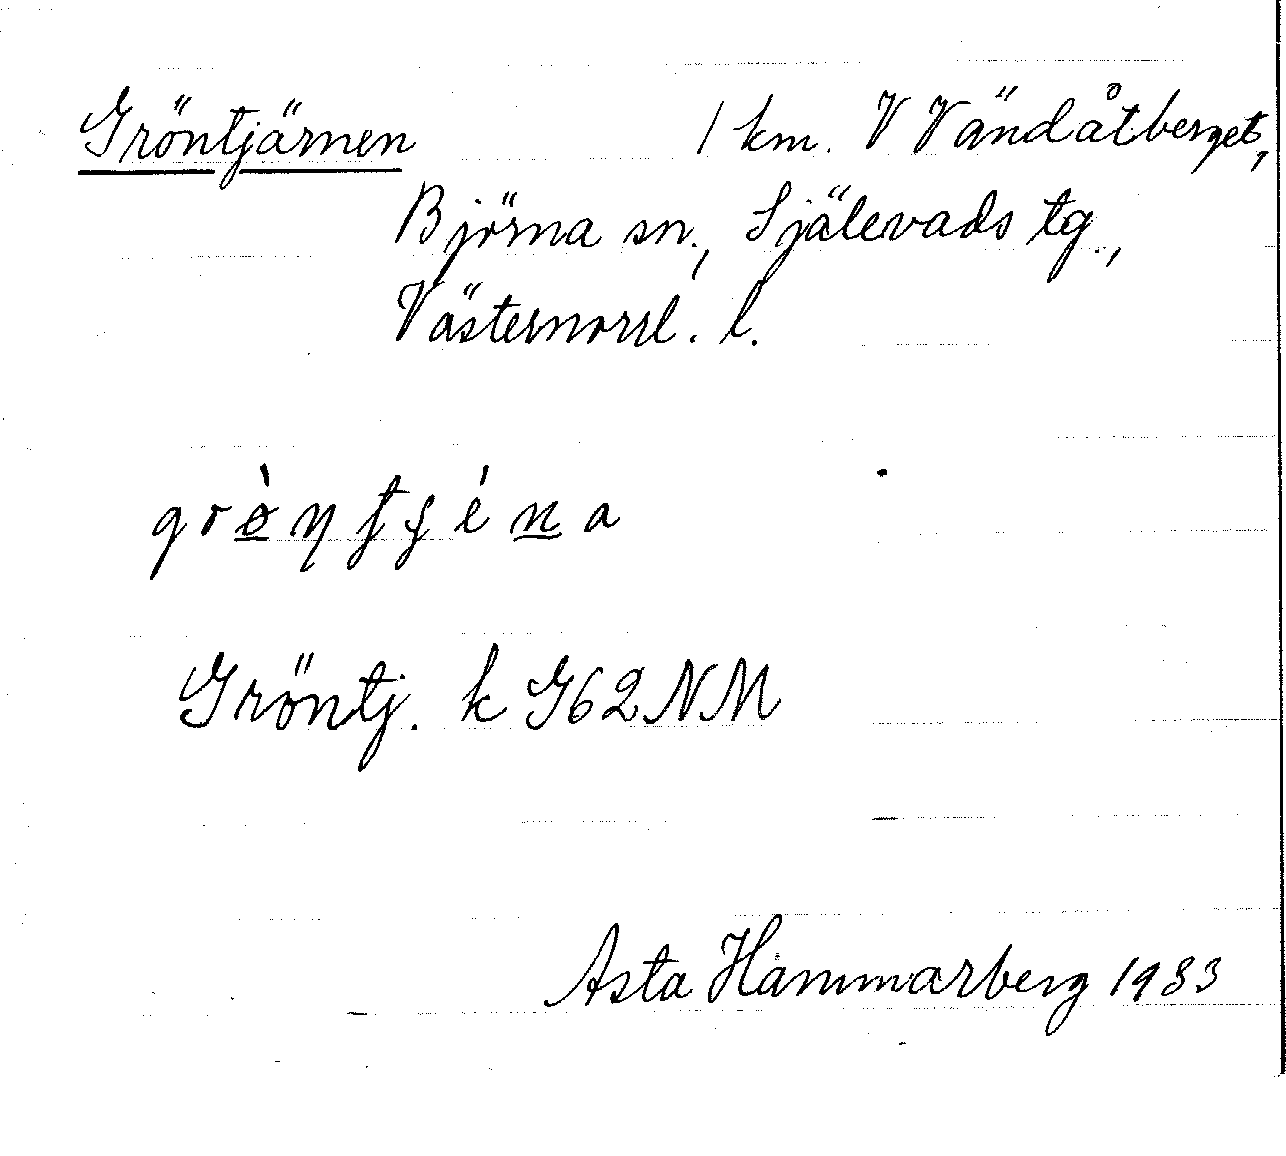 Gröntjärnen 1 km. V Vändåtberget,
Björna sn., Själevads tg.,
Västernorrl. l.
Gröntj. k G62NM
Asta Hammarberg 1983